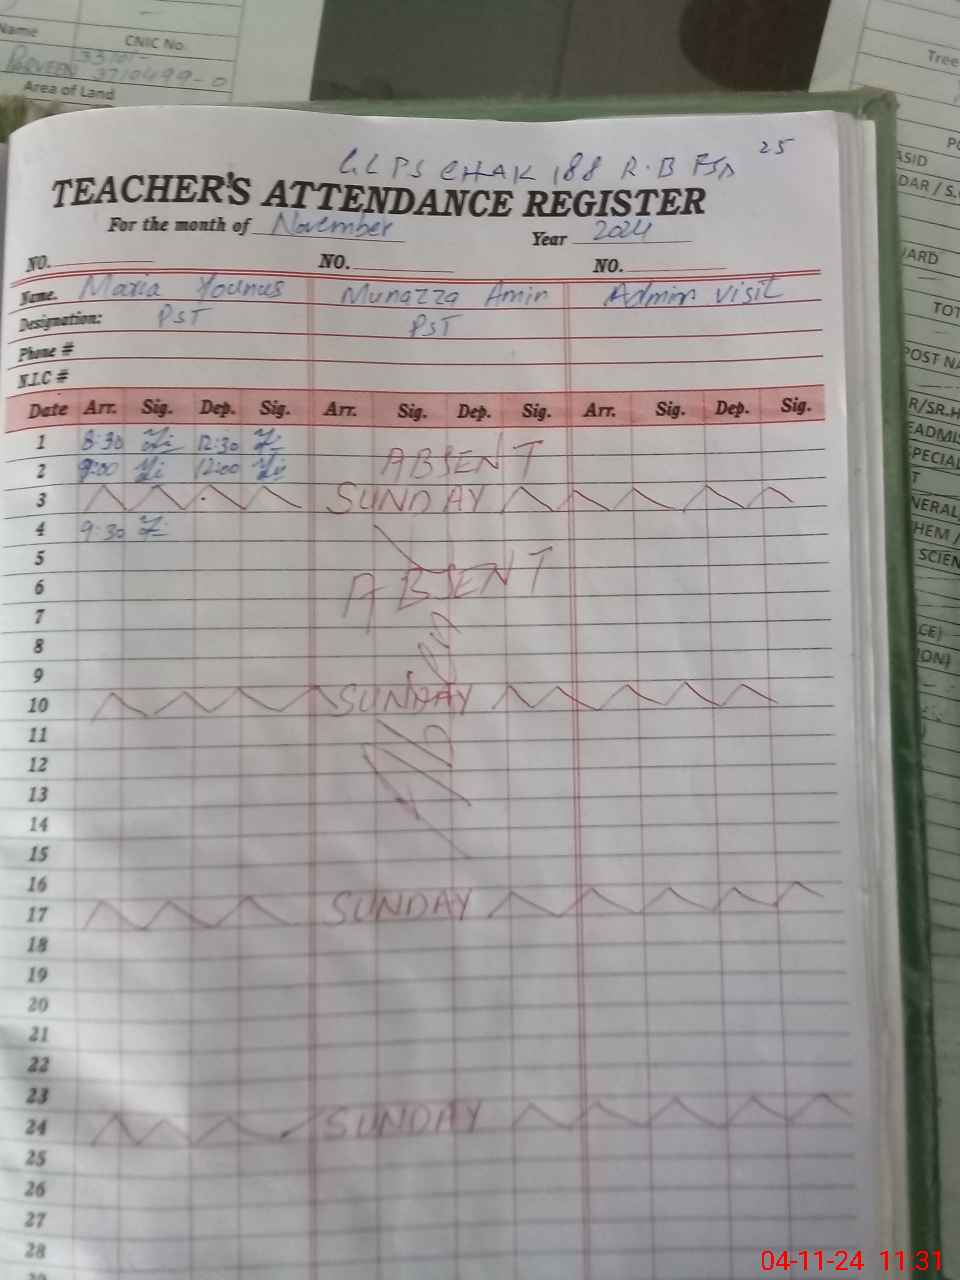 Name
CNIC No.
33101-
PARVEEN 3710499-0
Area of Land
Tree
25
GLPS CHAK 188 R.B FSD
TEACHER'S ATTENDANCE REGISTER
For the month of November Year 2024
NO. NO. NO.
Name. Maria Younus Munazza Amin Admin visit
Designation: PST PST
Phone #
N.I.C #
Date Arr. Sig. Dep. Sig. Arr. Sig. Dep. Sig. Arr. Sig. Dep. Sig.
1 8:30 12:30
2 9:00 12:00 ABSENT
3 SUNDAY
4 9:30
5
6 ABSENT
7
8
9
10 SUNDAY
11
12
13
14
15
16
17 SUNDAY
18
19
20
21
22
23
24 SUNDAY
25
26
27
28
ASID
DAR / S.
ARD
TOT
POST NA
R/SR.H
EADMIS
PECIAL
T
NERAL
HEM /
SCIEN
CE)
ION)
04-11-24 11:31